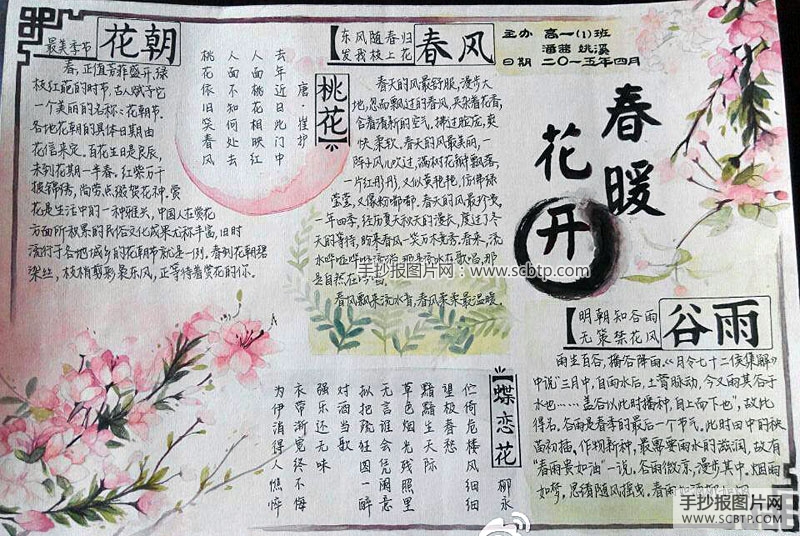 最美季节
花朝
春,正值芳菲盛开,绿
枝红葩的时节,古人赋予它
一个美丽的名称:花朝节。
各地花朝的具体日期由
花信来定。百花生日是良辰,
未到花期一半春,红紫万千
披锦绣,尚劳点缀贺花神。赏
花是生活中的一种雅兴,中国人在赏花
方面所积累的民俗文化成果尤称丰富,旧时
流行于各地城乡的花朝节就是一例。春到花朝碧
染丝,枝梢剪彩袅东风,正等待着赏花的你。
桃花
唐·崔护
去年今日此门中
人面桃花相映红
人面不知何处去
桃花依旧笑春风
东风随春归
发我枝上花
春风
春天的风最舒服,漫步大
地,忽而飘过的春风,夹杂着花香,
含着清新的空气,拂过脸庞,爽
快,柔软。春天的风最美丽,一
阵子风儿吹过,满树花瓣飘落,
一片红彤彤,又似黄艳艳,仿佛绿
莹莹,又像粉嘟嘟。春天的风最珍贵,
一年四季,经历夏天秋天的漫长,度过了冬
天的等待,盼来春风一笑万木竞秀。春来,流
水哗哗哗
那是自然在
春风飘来流水香,春风柔来最温暖。
主办 高一(1)班
潘茜 姚溪
日期 二〇一五年四月
春暖
花开
手抄报图片网:www.scbtp.com
明朝知谷雨
无策禁花风
谷雨
雨生百谷,播谷降雨。《月令七十二候集解》
中说"三月中,自雨水后,土膏脉动,今又雨其谷于
水也……盖谷以此时播种,自上而下也",故此
得名。谷雨是春季的最后一个节气,此时田中的秧
苗初插,作物新种,最需要雨水的滋润,故有
"春雨贵如油"一说。谷雨微凉,漫步其中。烟雨
如梦。思绪随风摇曳,春雨
蝶恋花
柳永
伫倚危楼风细细
望极春愁
黯黯生天际
草色烟光残照里
无言谁会凭阑意
拟把疏狂图一醉
对酒当歌
强乐还无味
衣带渐宽终不悔
为伊消得人憔悴
手抄报图片网
WWW.SCBTP.COM